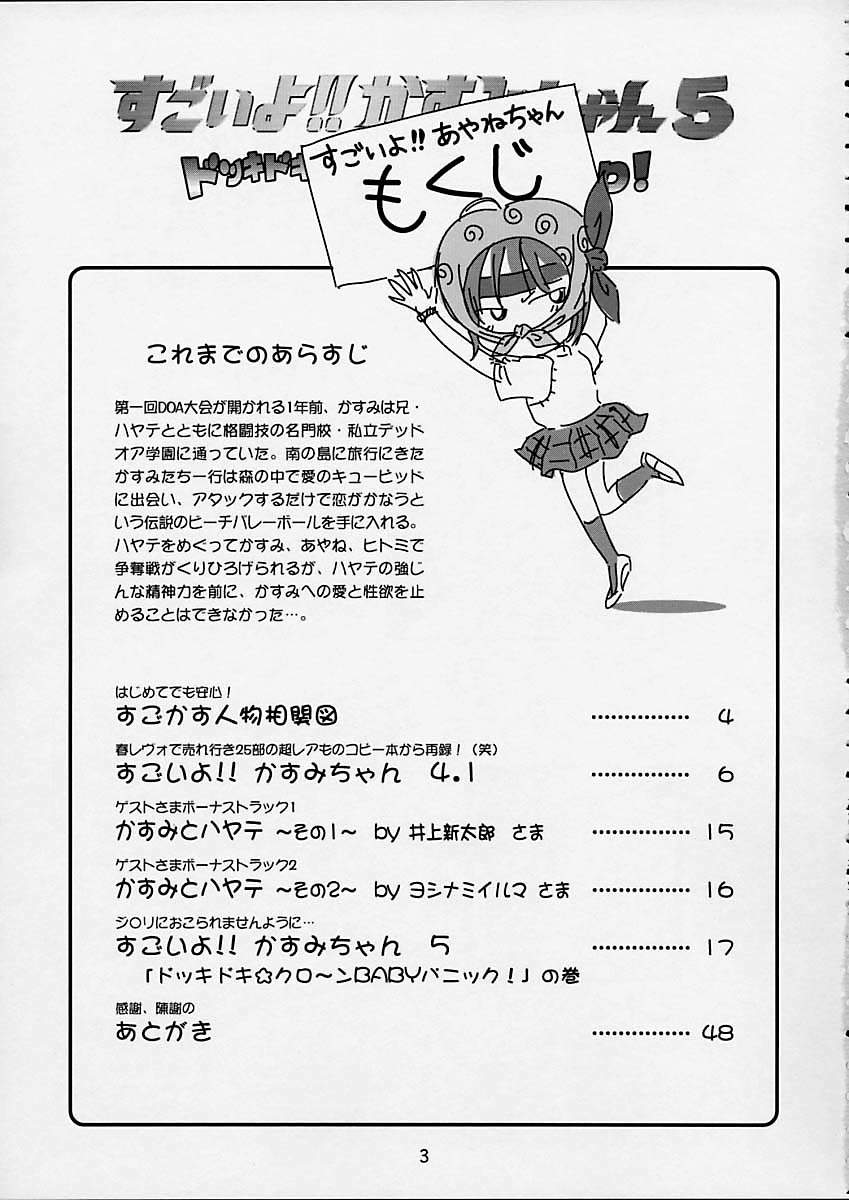 すごいよ!! かすみちゃん 5
ドッキドキ
すごいよ!! あやねちゃん
もくじ
これまでのあらすじ
第一回DOA大会が開かれる1年前、かすみは兄・
ハヤテとともに格闘技の名門校・私立デッド
オア学園に通っていた。南の島に旅行にきた
かすみたち一行は森の中で愛のキューピッド
に出会い、アタックするだけで恋がかなうと
いう伝説のビーチバレーボールを手に入れる。
ハヤテをめぐってかすみ、あやね、ヒトミで
争奪戦がくりひろげられるが、ハヤテの強じ
んな精神力を前に、かすみへの愛と性欲を止
めることはできなかった…。
はじめてでも安心!
すごかす人物相関図 ……………… 4
春レヴォで売れ行き25部の超レアものコピー本から再録!(笑)
すごいよ!! かすみちゃん 4.1 ……………… 6
ゲストさまボーナストラック1
かすみとハヤテ ～その1～ by 井上新太郎 さま ……………… 15
ゲストさまボーナストラック2
かすみとハヤテ ～その2～ by ヨシナミイルマ さま ……………… 16
シ○リにおこられませんように…
すごいよ!! かすみちゃん 5 ……………… 17
「ドッキドキ☆クロ～ンBABYパニック!」の巻
感謝、陳謝の
あとがき ……………… 48
3